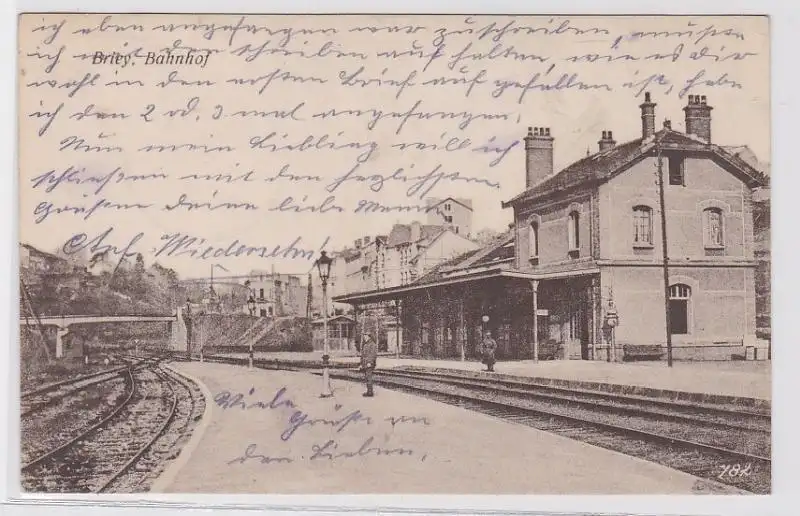 ich eben angefangen war zuschreiben, mußte
ich mit den schreiben aufhalten, wie es Dir
wohl in den ersten Brief aufgefallen ist, habe
ich den 2 od. 3 mal angefangen.
Briey, Bahnhof
Nun mein Liebling will ich
schließen mit den herzlichsten
Grüßen deine liebe
Auf Wiedersehn!
Viele
Grüße an
den Lieben.
182